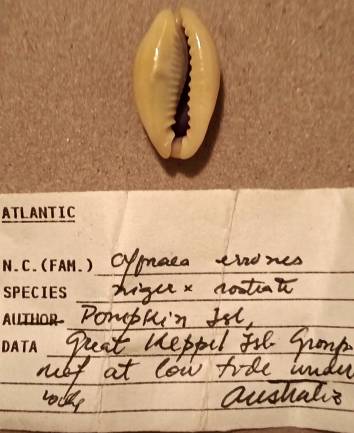 ATLANTIC
N.C.(FAM.) Cypraea errones
SPECIES niger x rostrate
AUTHOR Pompkin Isl,
DATA Great Keppel Isl Group
reef at low tide under
Australia